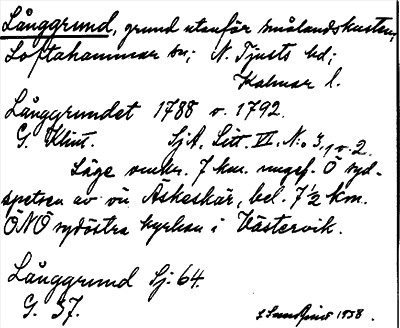 Långgrund, grund utanför smålandskusten,
Loftahammar sn; N. Tjusts hd;
Kalmar l.
Långgrundet 1788 o. 1792.
G. Klint. SjA. Litt. VI. N:o 3, 1 o. 2.
Läge omkr. 7 km. ungef. Ö syd-
spetsen av ön Äskeskär, bel. 7 ½ km.
ÖNÖ sydöstra kyrkan i Västervik.
Långgrund Sj. 64.
G. 37.
1938.